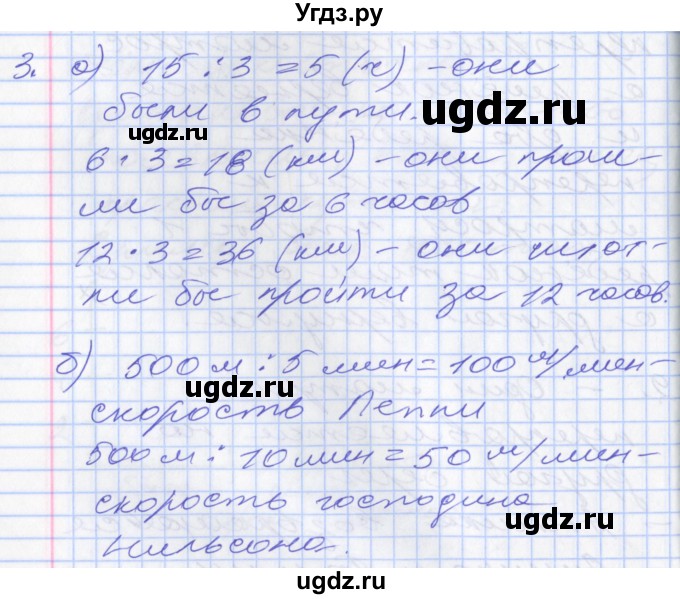 Угдз.ру
3. а) 15 : 3 = 5 (ч) – они
были в пути.
6 · 3 = 18 (км) – они прош-
ли бы за 6 часов
12 · 3 = 36 (км) – они
ли бы пройти за 12 часов.
б) 500 м : 5 мин = 100 м/мин –
скорость Пеппи
500 м : 10 мин = 50 м/мин –
скорость господина
Нильсона.
ugdz.ru
ugdz.ru
ugdz.ru
ugdz.ru
ugdz.ru
ugdz.ru
ugdz.ru